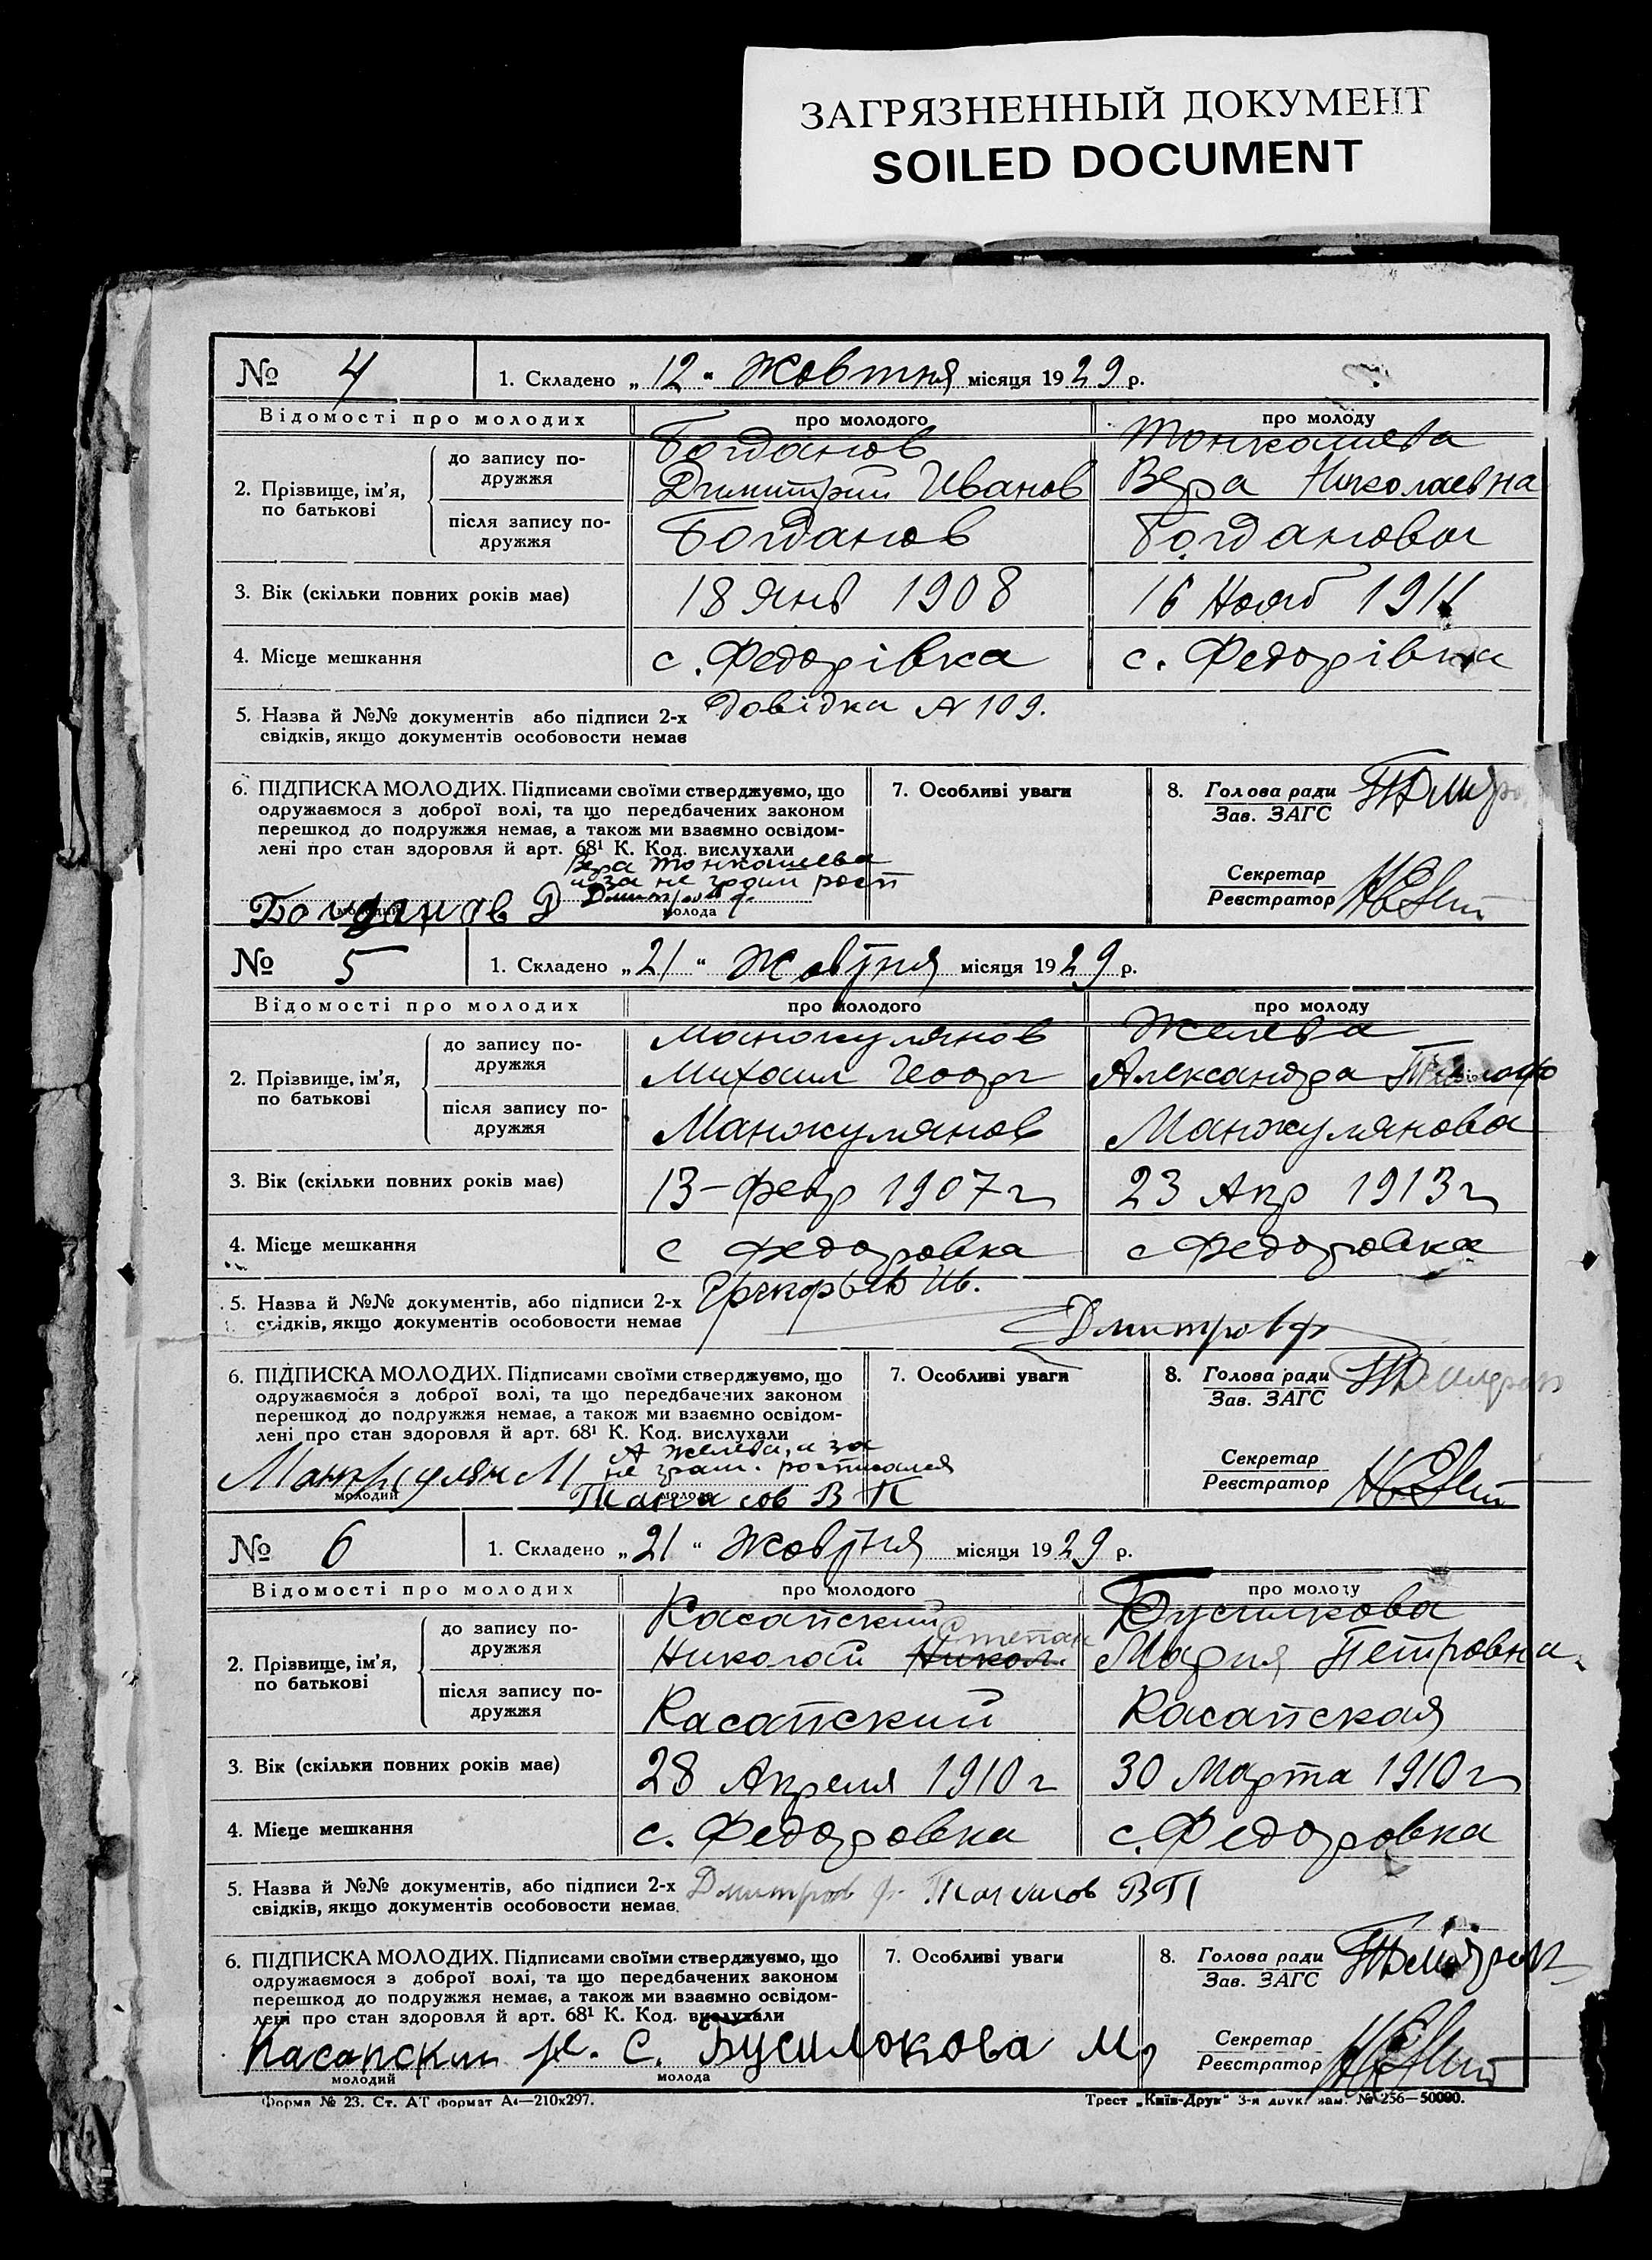 ЗАГРЯЗНЕННЫЙ ДОКУМЕНТ
SOILED DOCUMENT
№ 4 1. Складено „12“ Жовтня місяця 1929 р.
Відомості про молодих про молодого про молоду
2. Прізвище, ім’я, по батькові
до запису подружжя
Богданов
Димитрий Иванов
Тонкошева
Вера Николаевна
після запису подружжя
Богданов
Богданова
3. Вік (скільки повних років має) 18 Янв 1908 16 Нояб 1911
4. Місце мешкання с. Федорівка с. Федорівка
5. Назва й №№ документів або підписи 2-х Довідка № 109.
свідків, якщо документів особовости немає
6. ПІДПИСКА МОЛОДИХ. Підписами своїми стверджуємо, що
одружаємося з доброї волі, та що передбачених законом
перешкод до подружжя немає, а також ми взаємно освідом-
лені про стан здоровля й арт. 68¹ К. Код. вислухали
Вера Тонкошева
и за не грам расп
Богданов Д Дмитров ф.
молодий молода
7. Особливі уваги
8. Голова ради
Зав. ЗАГС
Секретар
Реєстратор
№ 5 1. Складено „21“ Жовтня місяця 1929 р.
Відомості про молодих про молодого про молоду
2. Прізвище, ім’я, по батькові
до запису подружжя
Манжулянов
Михаил Георг
Желева
Александра
після запису подружжя
Манжулянов
Манжулянова
3. Вік (скільки повних років має) 13-февр 1907 г 23 Апр 1913 г
4. Місце мешкання с Федоровка с Федоровка
5. Назва й №№ документів, або підписи 2-х
свідків, якщо документів особовости немає
Дмитров ф
6. ПІДПИСКА МОЛОДИХ. Підписами своїми стверджуємо, що
одружаємося з доброї волі, та що передбачених законом
перешкод до подружжя немає, а також ми взаємно освідом-
лені про стан здоровля й арт. 68¹ К. Код. вислухали
А Желева, и за
не грам. росписался
Танасов В П
молодий молода
7. Особливі уваги
8. Голова ради
Зав. ЗАГС
Секретар
Реєстратор
№ 6 1. Складено „21“ Жовтня місяця 1929 р.
Відомості про молодих про молодого про молоду
2. Прізвище, ім’я, по батькові
до запису подружжя
Касапский
Николай Никол Степан
Бусилкова
Мария Петровна
після запису подружжя
Касапский
Касапская
3. Вік (скільки повних років має) 28 Апреля 1910 г 30 Марта 1910 г
4. Місце мешкання с. Федоровка с. Федоровка
5. Назва й №№ документів, або підписи 2-х Дмитров ф. Танасов ВП
свідків, якщо документів особовости немає.
6. ПІДПИСКА МОЛОДИХ. Підписами своїми стверджуємо, що
одружаємося з доброї волі, та що передбачених законом
перешкод до подружжя немає, а також ми взаємно освідом-
лені про стан здоровля й арт. 68¹ К. Код. вислухали
Касапский н. С. Бусилокова М
молодий молода
7. Особливі уваги
8. Голова ради
Зав. ЗАГС
Секретар
Реєстратор
Форма № 23. Ст. АТ формат А4—210х297. Трест „Київ-Друк“ 3-я друк. зам. № 256—50000.